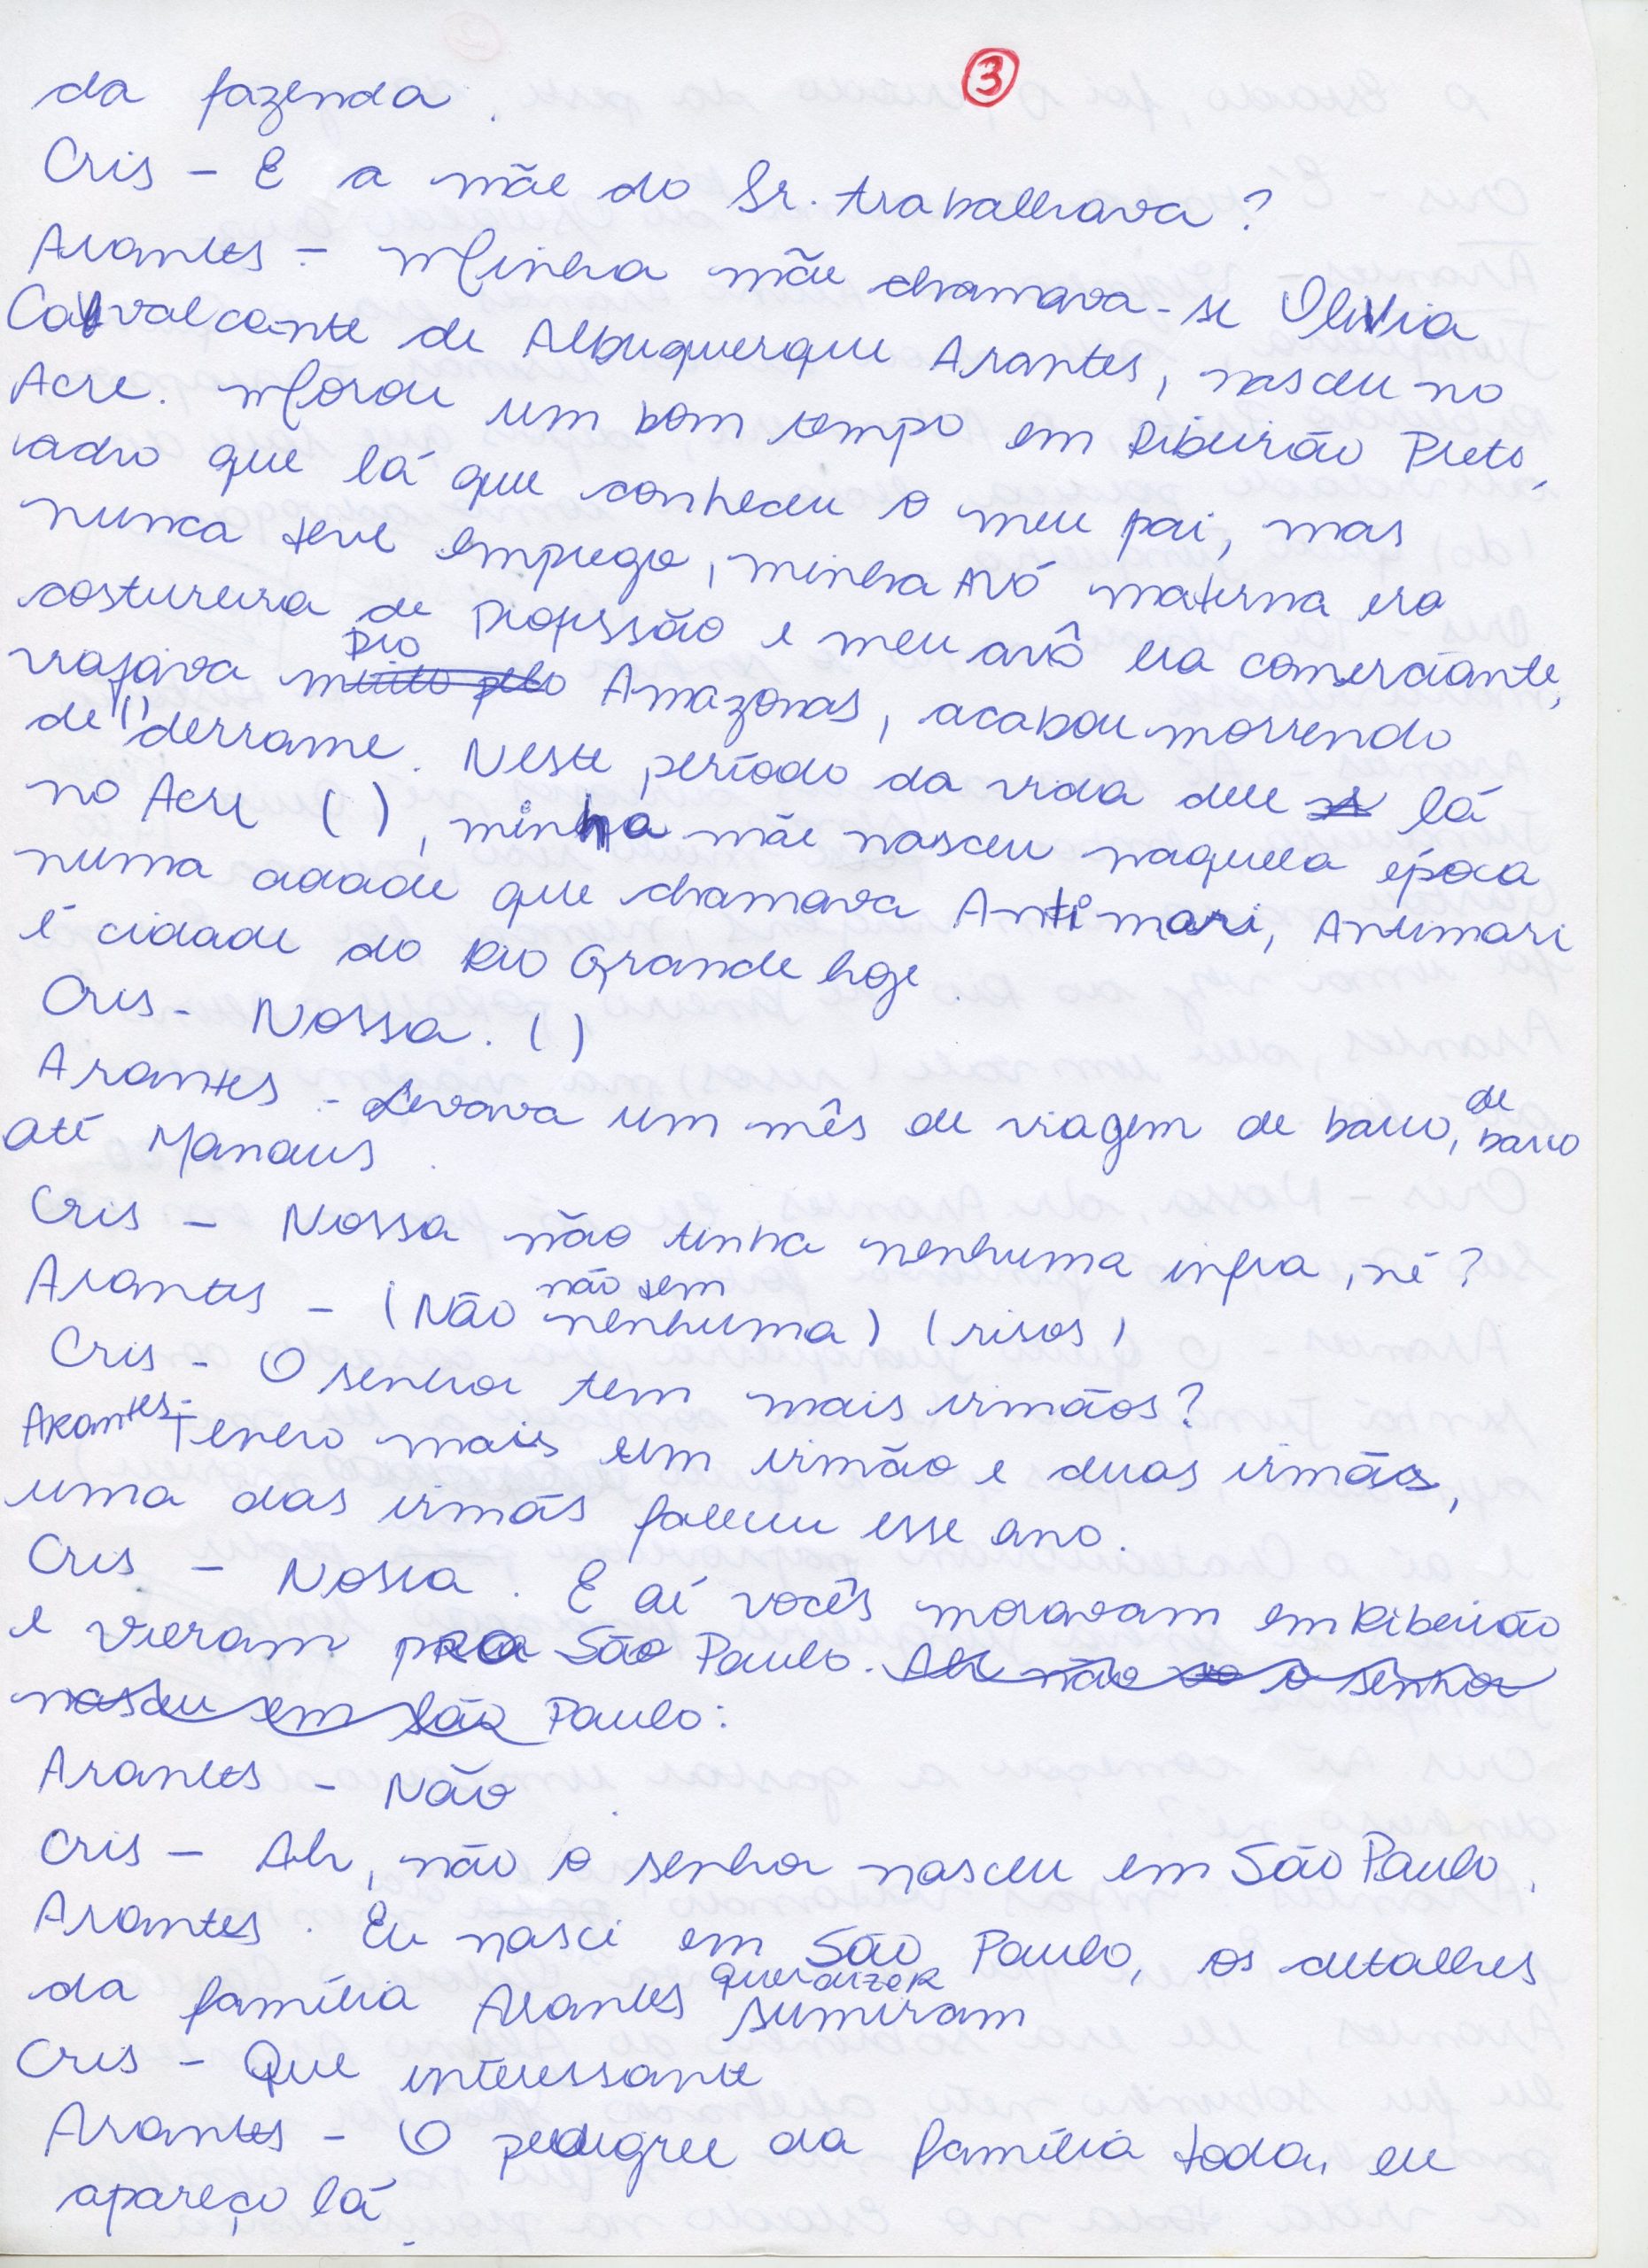 3
da fazenda.
Cris - E a mãe do Sr. trabalhava?
Arantes - Minha mãe chamava-se Olivia
Cavalcante de Albuquerque Arantes, nasceu no
Acre. Morou um bom tempo em Ribeirão Preto,
acho que lá que conheceu o meu pai, mas
nunca teve emprego, minha avó materna era
costureira de profissão e meu avô era comerciante,
viajava muito pelo Rio Amazonas, acabou morrendo
de () derrame. Neste período da vida dele lá
no Acre ( ), minha mãe nasceu naquela época
numa cidade que chamava Antimari, Antimari
é cidade do Rio Grande hoje.
Cris - Nossa. ( )
Arantes - Levava um mês de viagem de barco, de barco
até Manaus.
Cris - Nossa não tinha nenhuma infra, né?
Arantes - (Não não tem nenhuma) (risos)
Cris - O senhor tem mais irmãos?
Arantes - Tenho mais um irmão e duas irmãs,
uma das irmãs faleceu esse ano.
Cris - Nossa. E aí vocês moravam em Ribeirão
e vieram pra São Paulo. Ah não o senhor
nasceu em São Paulo:
Arantes - Não.
Cris - Ah, não o senhor nasceu em São Paulo.
Arantes. Eu nasci em São Paulo, os detalhes
da família Arantes quer dizer sumiram
Cris - Que interessante
Arantes - O pedigree da família toda, eu
apareço lá.